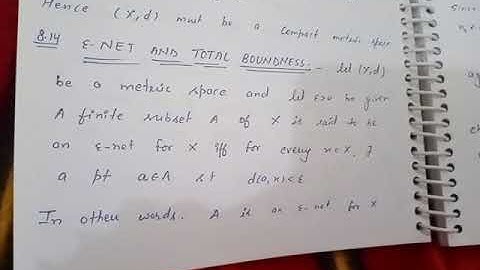 Hence (X,d) must be a compact metric space
8.14 ε-NET AND TOTAL BOUNDNESS:- let (X,d)
be a metric space and let ε>0 be given
A finite subset A of X is said to be
an ε-net for X iff for every x∈X, ∃
a pt a∈A st d(a,x)<ε
In other words. A is an ε-net for X
Since